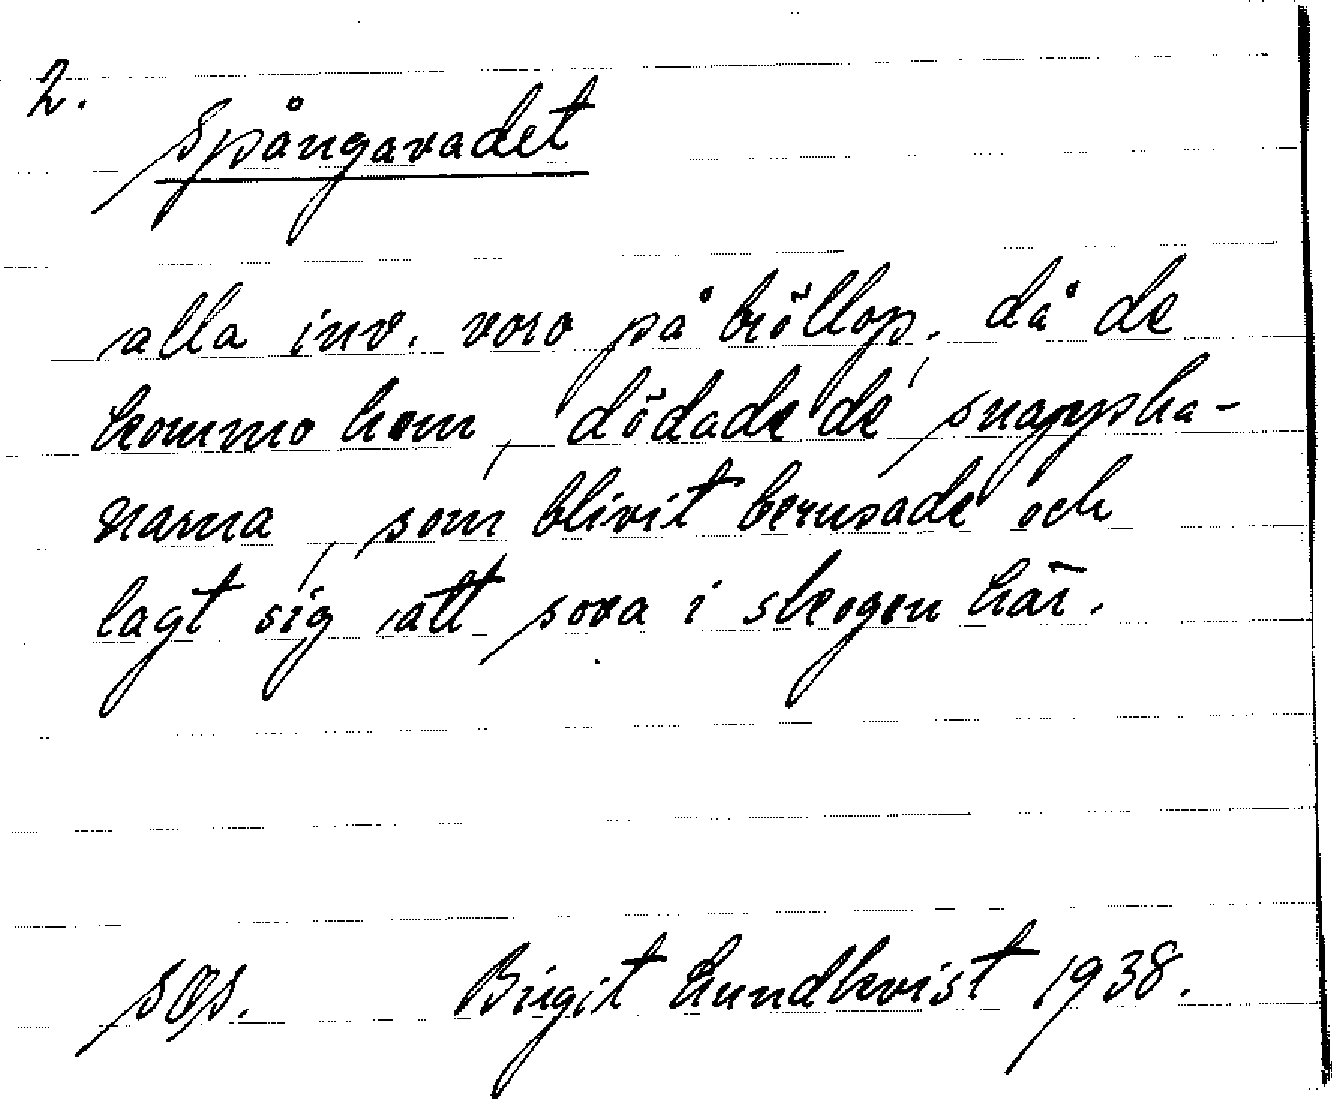 2.
Spångavadet
alla inv. voro på bröllop, då de
kommo hem, dödade de snappha-
narna, som blivit berusade och
lagt sig att sova i skogen här.
Birgit Lundkvist 1938.